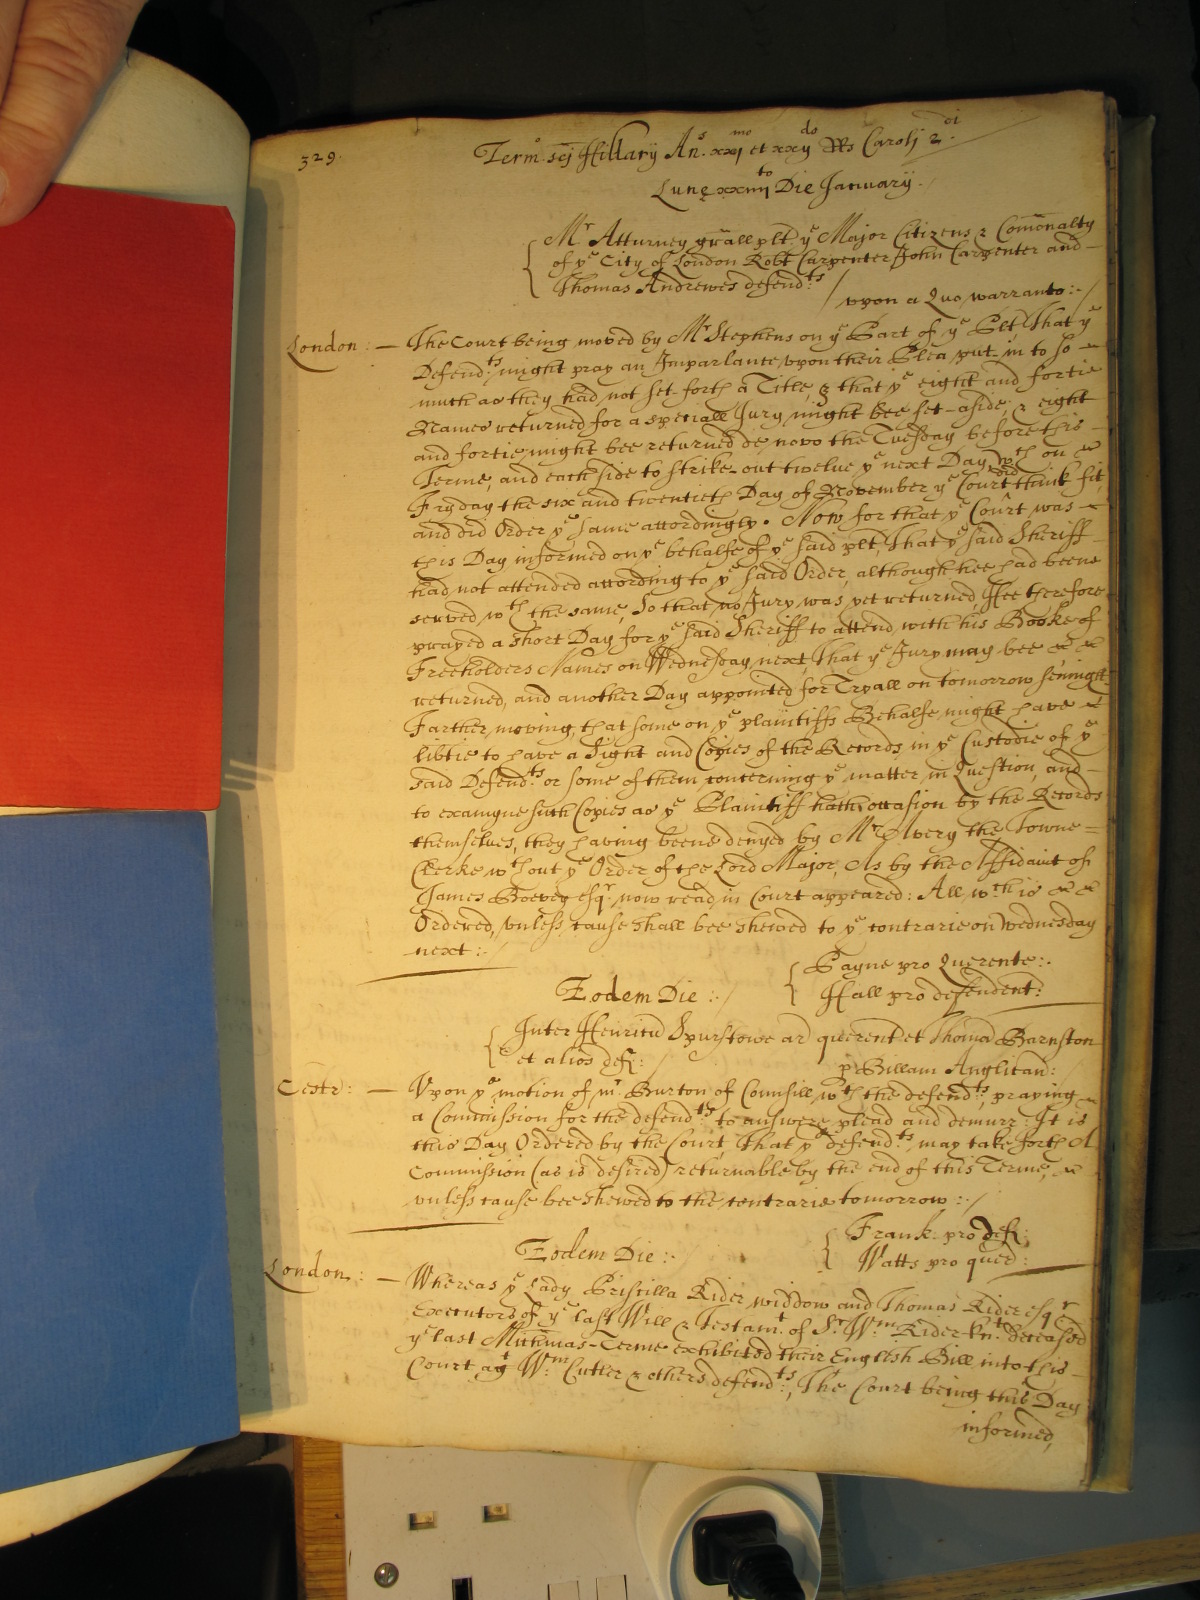 329.
Term sci Hillary An.s xxj mo et xxij do Rs Caroli 2 di.
Lune xxiiij to Die January.
Mr Atturney gn̄all plt. ye Major Citizens & Comōnalty
of ye City of London Robt Carpenter John Carpenter and
Thomas Andrewes defend:ts
vpon a Quo warranto:
London: — The Court being moved by Mr Stephens on ye Part of ye Plt That ye
Defend:ts might pray an Imparlance vpon their Plea put in to so
much as they had not set forth a Title, & that ye eight and fortie
Names returned for a speciall Jury might bee set-aside; & eight
and fortie might bee returned de novo the Tuesday before this
Terme, and each side to strike out twelve ye next Day, wch on
Fryday the six and twentieth Day of November ye Court did thinke fit,
and did Order ye same accordingly. Now for that ye Court was
this Day informed on ye behalfe of ye said plt, That ye said Sheriff
had not attended according to ye said Order, although hee had beene
served wth the same, So that no Jury was yet returned, Hee therefore
prayed a short Day for ye said Sheriff to attend, with his Booke of
Freeholders Names on Wednesday next, That ye Jury may bee
returned, and another Day appointed for Tryall on tomorrow sēnight
Farther moving, that some on ye plaintiffs Behalfe might have
libtie to have a Sight and Copies of the Records in ye Custodie of ye
said Defend:ts or some of them concerning ye matter in Question, and
to examyne such Copies as ye Plaintiff hath occasion by the Records
themselves, they having beene denyed by Mr Avery the Towne=
Clerke wthout ye Order of the Lord Major, As by the Affidavit of
James Boevey Esqr now read in Court appeared: All wch is
Ordered, vnless cause shall bee shewed to ye contrarie on Wednesday
next:
Payne pro Querente:
Eodem Die:
Hall pro defendent:
Inter Henricū Spurstowe ar querent et Thomā Barnston
et alios def:
p Billam Anglican:
Cestr: — Vpon ye motion of mr Burton of Counsill wth the defend:ts, praying
a Commission for the defend:ts to answere, plead and demurr: It is
this Day Ordered by the Court, That ye defend:ts may take forth A
Commission (as is desired) returnable by the end of this Terme,
vnless cause bee shewed to the contrarie tomorrow:
Frank. pro def:
Eodem Die:
Watts pro quer:
London: — Whereas ye Lady Priscilla Rider widdow and Thomas Rider esqr
Executors of ye last Will & testamt of Sr Wm Rider knt deceased
ye last Michmas-Terme exhibited their English Bill into this
Court agt Wm Cutler & others defend:ts, The Court being this Day
informed,